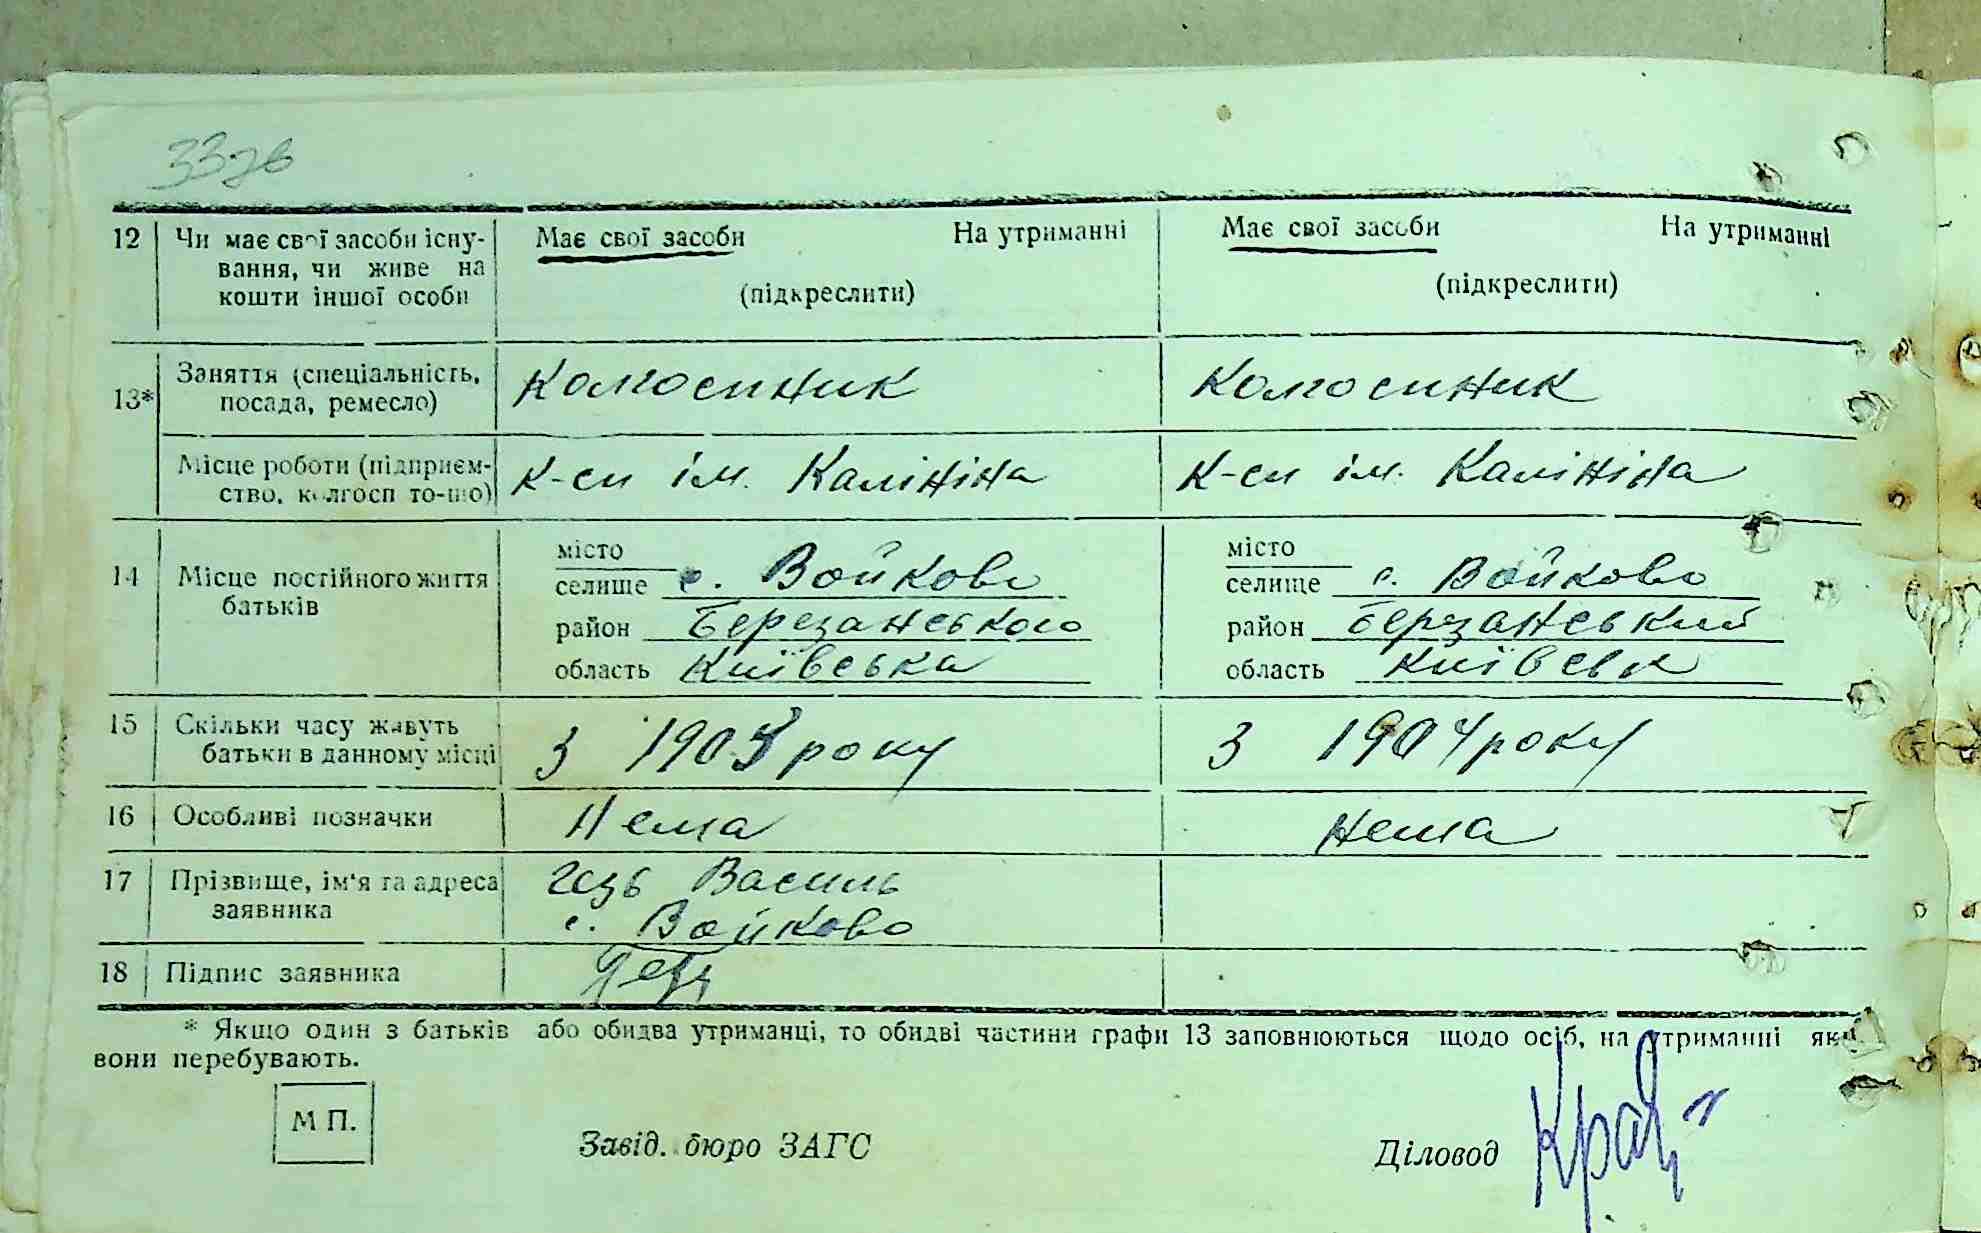 33зв
12 Чи має свої засоби існу- Має свої засоби На утриманні Має свої засоби На утриманні
вання, чи живе на
кошти іншої особи (підкреслити) (підкреслити)
Заняття (спеціальність, Колгоспник Колгоспник
13* посада, ремесло)
Місце роботи (підприєм- К-сп ім. Калініна К-сп ім. Калініна
ство, колгосп то-що)
місто місто
14 Місце постійного життя селище с. Войково селище с. Войково
батьків район Березанського район Берзанський
область Київська область Київськ
15 Скільки часу живуть з 1904 року З 1904 року
батьки в данному місці
16 Особливі позначки Нема нема
17 Прізвище, ім'я та адреса Гезь Василь
заявника с. Войково
18 Підпис заявника Гезь
* Якщо один з батьків або обидва утриманці, то обидві частини графи 13 заповнюються щодо осіб, на утриманні яких
вони перебувають.
М П.
Завід. бюро ЗАГС Діловод